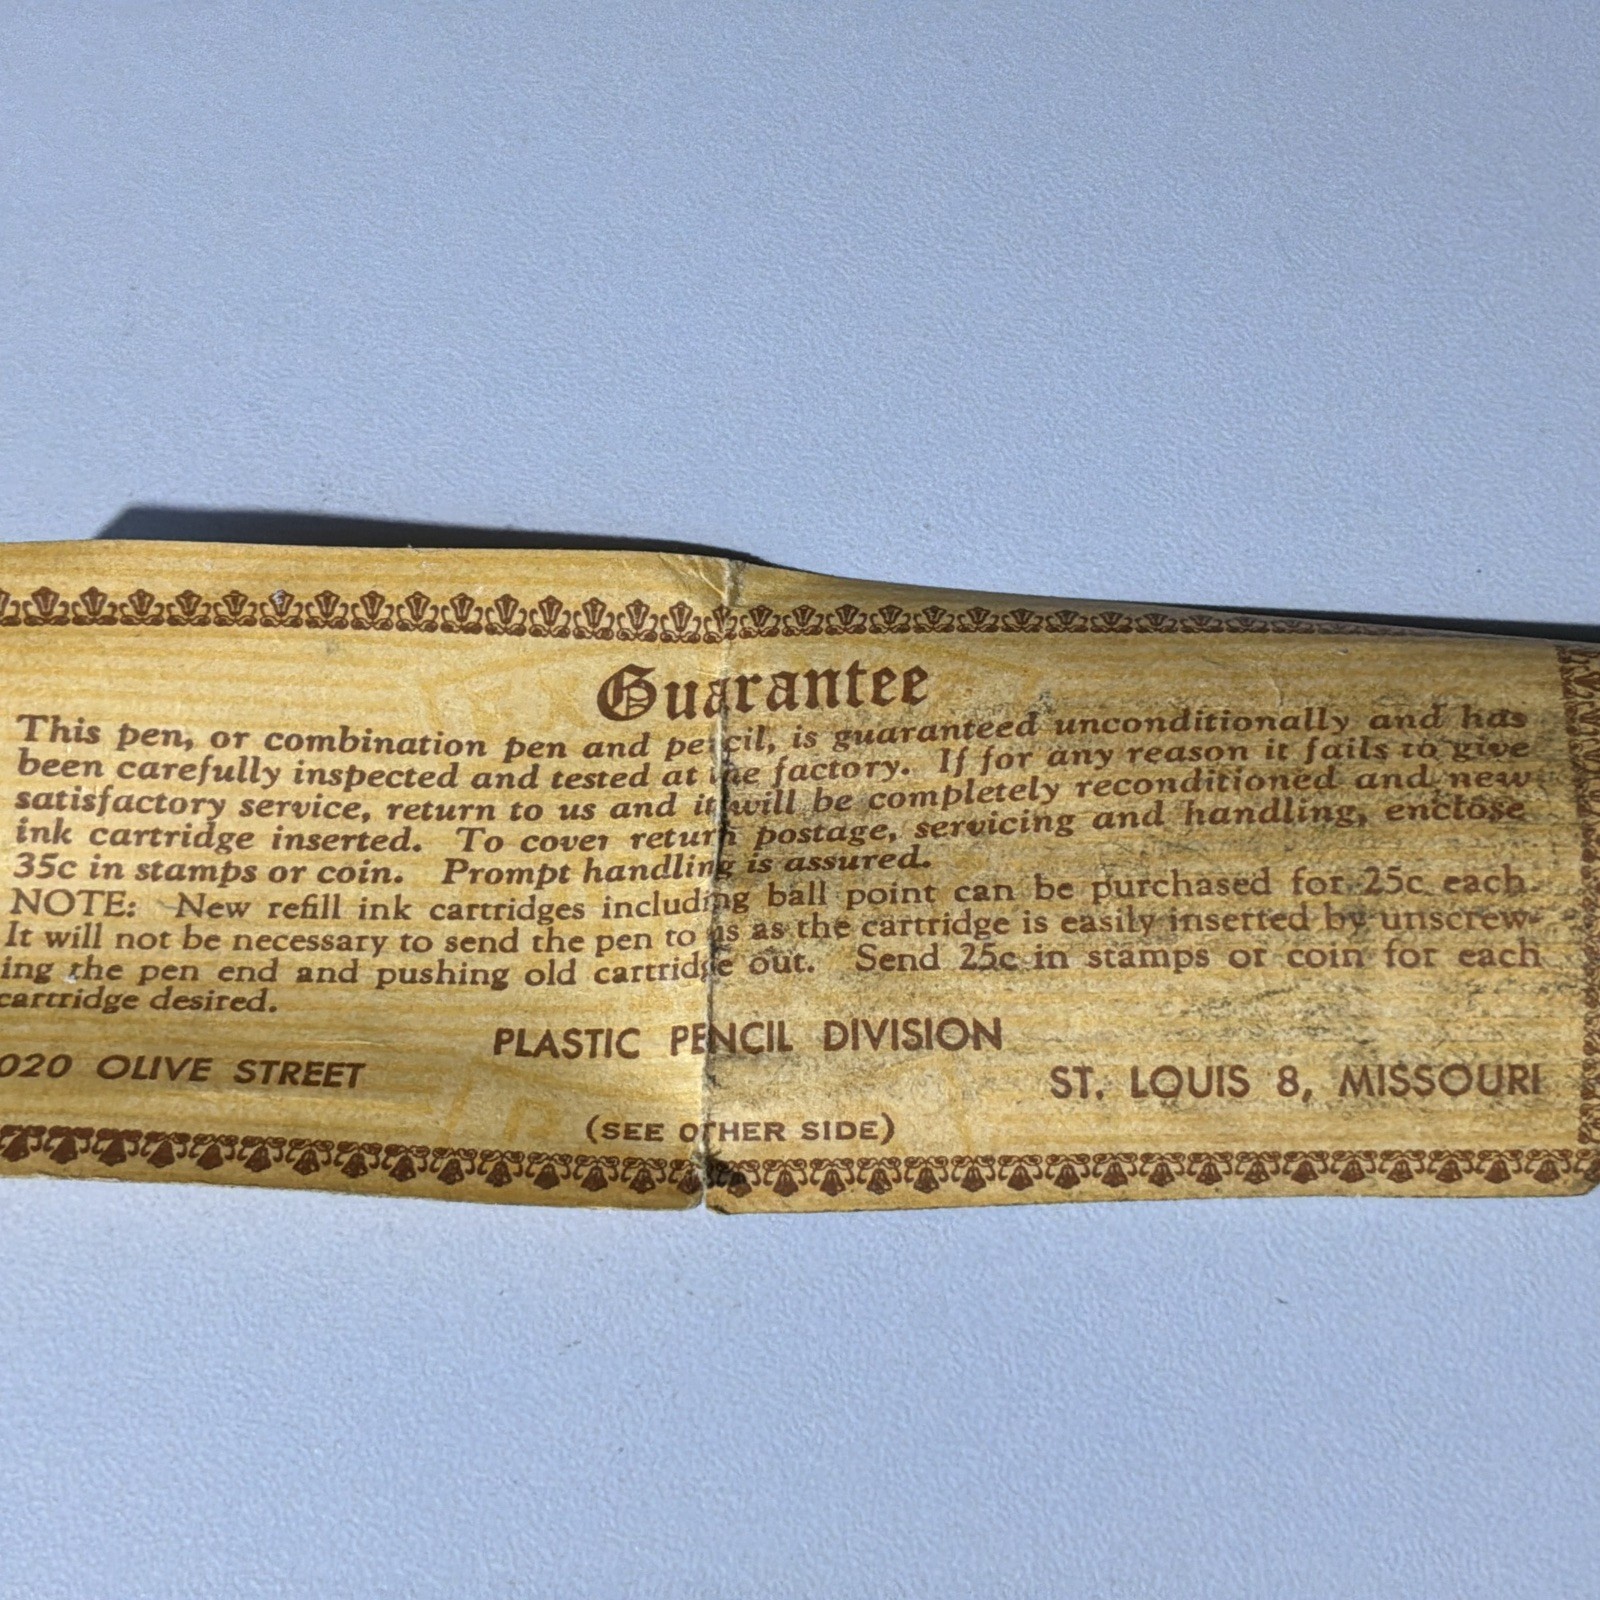 Guarantee
This pen, or combination pen and pencil, is guaranteed unconditionally and has
been carefully inspected and tested at the factory. If for any reason it fails to give
satisfactory service, return to us and it will be completely reconditioned and new
ink cartridge inserted. To cover return postage, servicing and handling, enclose
35c in stamps or coin. Prompt handling is assured.
NOTE: New refill ink cartridges including ball point can be purchased for 25c each.
It will not be necessary to send the pen to us as the cartridge is easily inserted by unscrew-
ing the pen end and pushing old cartridge out. Send 25c in stamps or coin for each
cartridge desired.
PLASTIC PENCIL DIVISION
020 OLIVE STREET
ST. LOUIS 8, MISSOURI
(SEE OTHER SIDE)